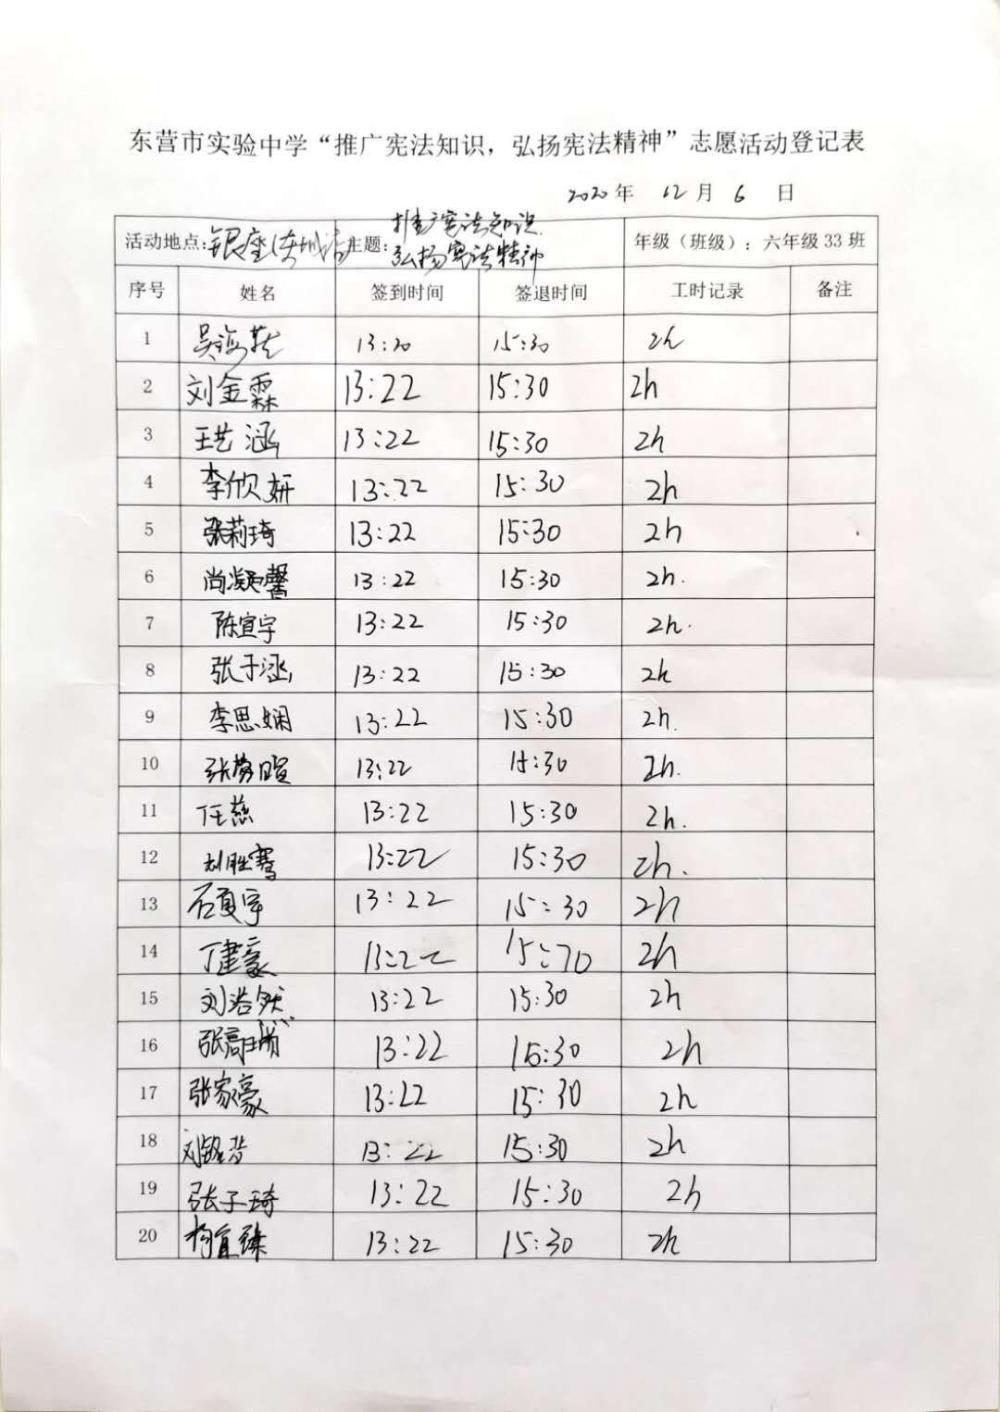 东营市实验中学“推广宪法知识，弘扬宪法精神”志愿活动登记表
2020 年 12 月 6 日
活动地点：银座 主题：推广宪法知识 弘扬宪法精神 年级（班级）：六年级 33 班
序号 姓名 签到时间 签退时间 工时记录 备注
1 吴 13:20 15:30 2h
2 刘金霖 13:22 15:30 2h
3 王艺涵 13:22 15:30 2h
4 李欣妍 13:22 15:30 2h
5 张莉琦 13:22 15:30 2h
6 尚凝馨 13:22 15:30 2h.
7 陈宣宇 13:22 15:30 2h.
8 张子涵 13:22 15:30 2h
9 李思娴 13:22 15:30 2h.
10 张 13:22 15:30 2h.
11 任慈 13:22 15:30 2h.
12 刘胜骞 13:22 15:30 2h.
13 石夏宇 13:22 15:30 2h
14 丁建豪 13:22 15:30 2h
15 刘浩然 13:22 15:30 2h
16 张高瑞 13:22 15:30 2h
17 张家豪 13:22 15:30 2h
18 刘 13:22 15:30 2h
19 张子琦 13:22 15:30 2h
20 13:22 15:30 2h